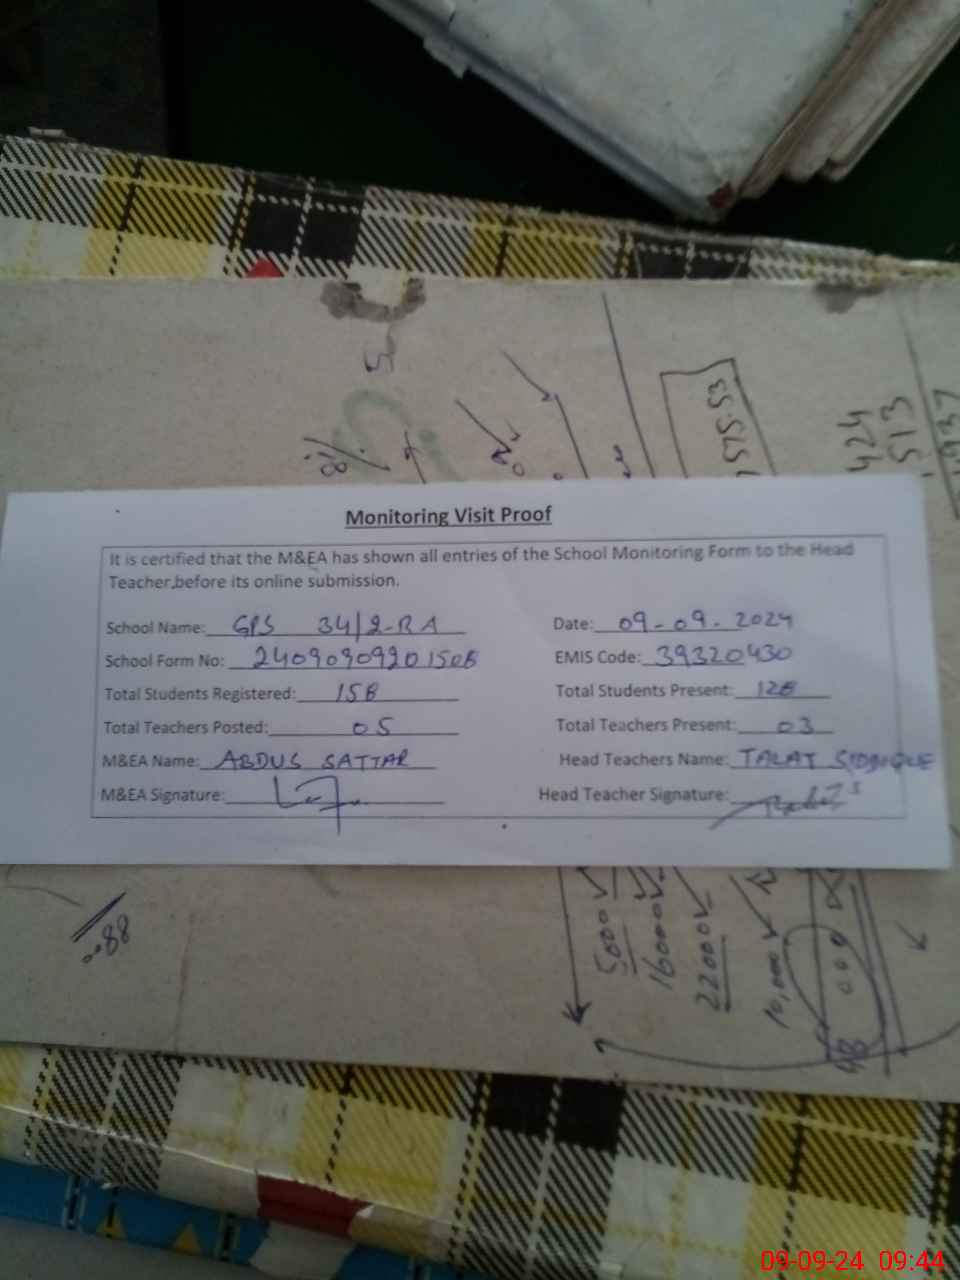 5
1575.53
424
513
Monitoring Visit Proof
It is certified that the M&EA has shown all entries of the School Monitoring Form to the Head
Teacher,before its online submission.
School Name: GPS 34/2-RA Date: 09-09-2024
School Form No: 2409090920150B EMIS Code: 39320430
Total Students Registered: 158 Total Students Present: 128
Total Teachers Posted: 05 Total Teachers Present: 03
M&EA Name: ABDUS SATTAR Head Teachers Name: TALAT SIDDIQUE
M&EA Signature: Head Teacher Signature:
5000
16000
22000
10,000
600
09-09-24 09:44